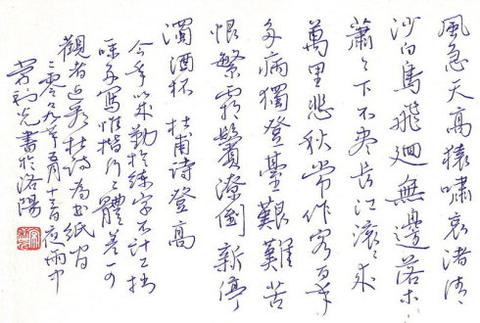 風急天高猿嘯哀渚清
沙白鳥飛迴無邊落木
蕭蕭下不盡長江滾滾來
萬里悲秋常作客百年
多病獨登臺艱難苦
恨繁霜鬢潦倒新停
濁酒杯 杜甫詩登高
今年以來勤於練字不計工拙
時寫惟楷行二體差可
觀者近录杜詩為書紙
二零零九年五月十三日夜雨中
書於洛陽